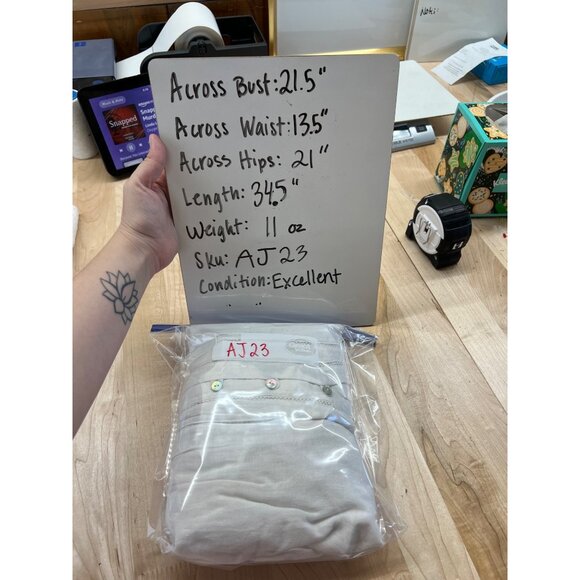 Across Bust: 21.5"
Across Waist: 13.5"
Across Hips: 21"
Length: 34.5"
Weight: 11 oz
Sku: AJ23
Condition: Excellent
AJ23
Snapped
Note: